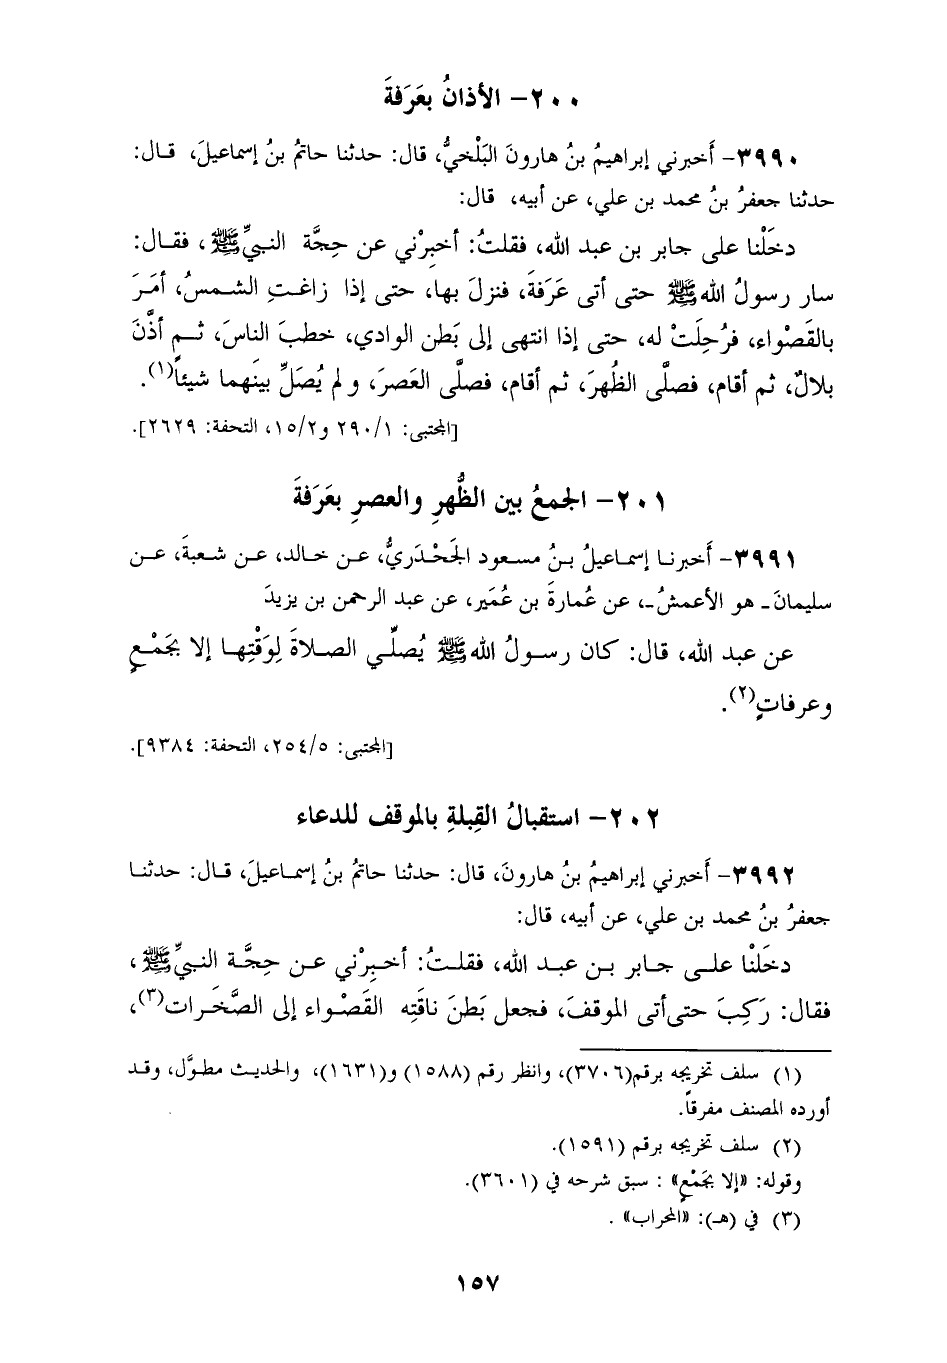 ٢٠٠- الأذانُ بعَرَفةَ
٣٩٩٠- أَخبرني إبراهيمُ بنُ هارونَ البَلْخيُّ، قال: حدثنا حاتمُ بنُ إسماعيلَ، قال:
حدثنا جعفرُ بنُ محمد بن علي، عن أبيه، قال:
دخَلْنا على جابر بن عبد الله، فقلتُ: أخبِرْني عن حِجَّة النبيِّ ﷺ، فقال:
سار رسولُ الله ﷺ حتى أتى عَرَفةَ، فنزلَ بها، حتى إذا زاغتِ الشمسُ، أمَرَ
بالقَصْواء، فرُحِلَتْ له، حتى إذا انتهى إلى بَطن الوادي، خطبَ الناسَ، ثم أذَّنَ
بلالٌ، ثم أقام، فصلَّى الظُهرَ، ثم أقام، فصلَّى العَصرَ، ولم يُصَلِّ بينَهما شيئاً(١).
[المجتبى: ٢٩٠/١ و١٥/٢، التحفة: ٢٦٢٩].
٢٠١- الجمعُ بين الظُّهرِ والعصرِ بعَرَفةَ
٣٩٩١- أَخبرنا إسماعيلُ بنُ مسعود الجَحْدَريُّ، عن خالد، عن شعبةَ، عن
سليمانَ ـ هو الأعمشُ ـ، عن عُمارةَ بن عُمَير، عن عبد الرحمن بن يزيدَ
عن عبد الله، قال: كان رسولُ الله ﷺ يُصلِّي الصلاةَ لِوَقْتِها إلا بجَمْعٍ
وعرفاتٍ(٢).
[المجتبى: ٢٥٤/٥، التحفة: ٩٣٨٤].
٢٠٢- استقبالُ القِبلةِ بالموقف للدعاء
٣٩٩٢- أَخبرني إبراهيمُ بنُ هارونَ، قال: حدثنا حاتمُ بنُ إسماعيلَ، قال: حدثنا
جعفرُ بنُ محمد بن علي، عن أبيه، قال:
دخَلْنا على جابر بن عبد الله، فقلتُ: أخبِرْني عن حِجَّة النبيِّ ﷺ،
فقال: رَكِبَ حتى أتى الموقفَ، فجعل بَطنَ ناقَتِه القَصْواء إلى الصَّخَرات(٣)،
(١) سلف تخريجه برقم(٣٧٠٦)، وانظر رقم (١٥٨٨) و(١٦٣١)، والحديث مطوَّل، وقد
أورده المصنف مفرقاً.
(٢) سلف تخريجه برقم (١٥٩١).
وقوله: «إلا بجَمْعٍ» : سبق شرحه في (٣٦٠١).
(٣) في (هـ): «المحراب» .
١٥٧